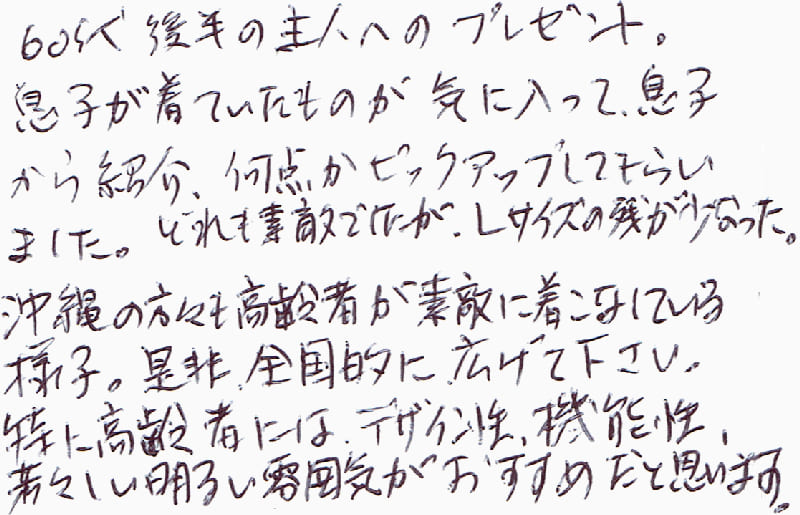 60代後半の主人へのプレゼント。
息子が着ていたものが気に入って、息子
から紹介、何点かピックアップしてもらい
ました。どれも素敵でしたが、Lサイズの残が少なかった。
沖縄の方々も高齢者が素敵に着こなしている
様子。是非、全国的に広げて下さい。
特に高齢者には、デザイン性、機能性、
若々しい明るい雰囲気がおすすめだと思います。